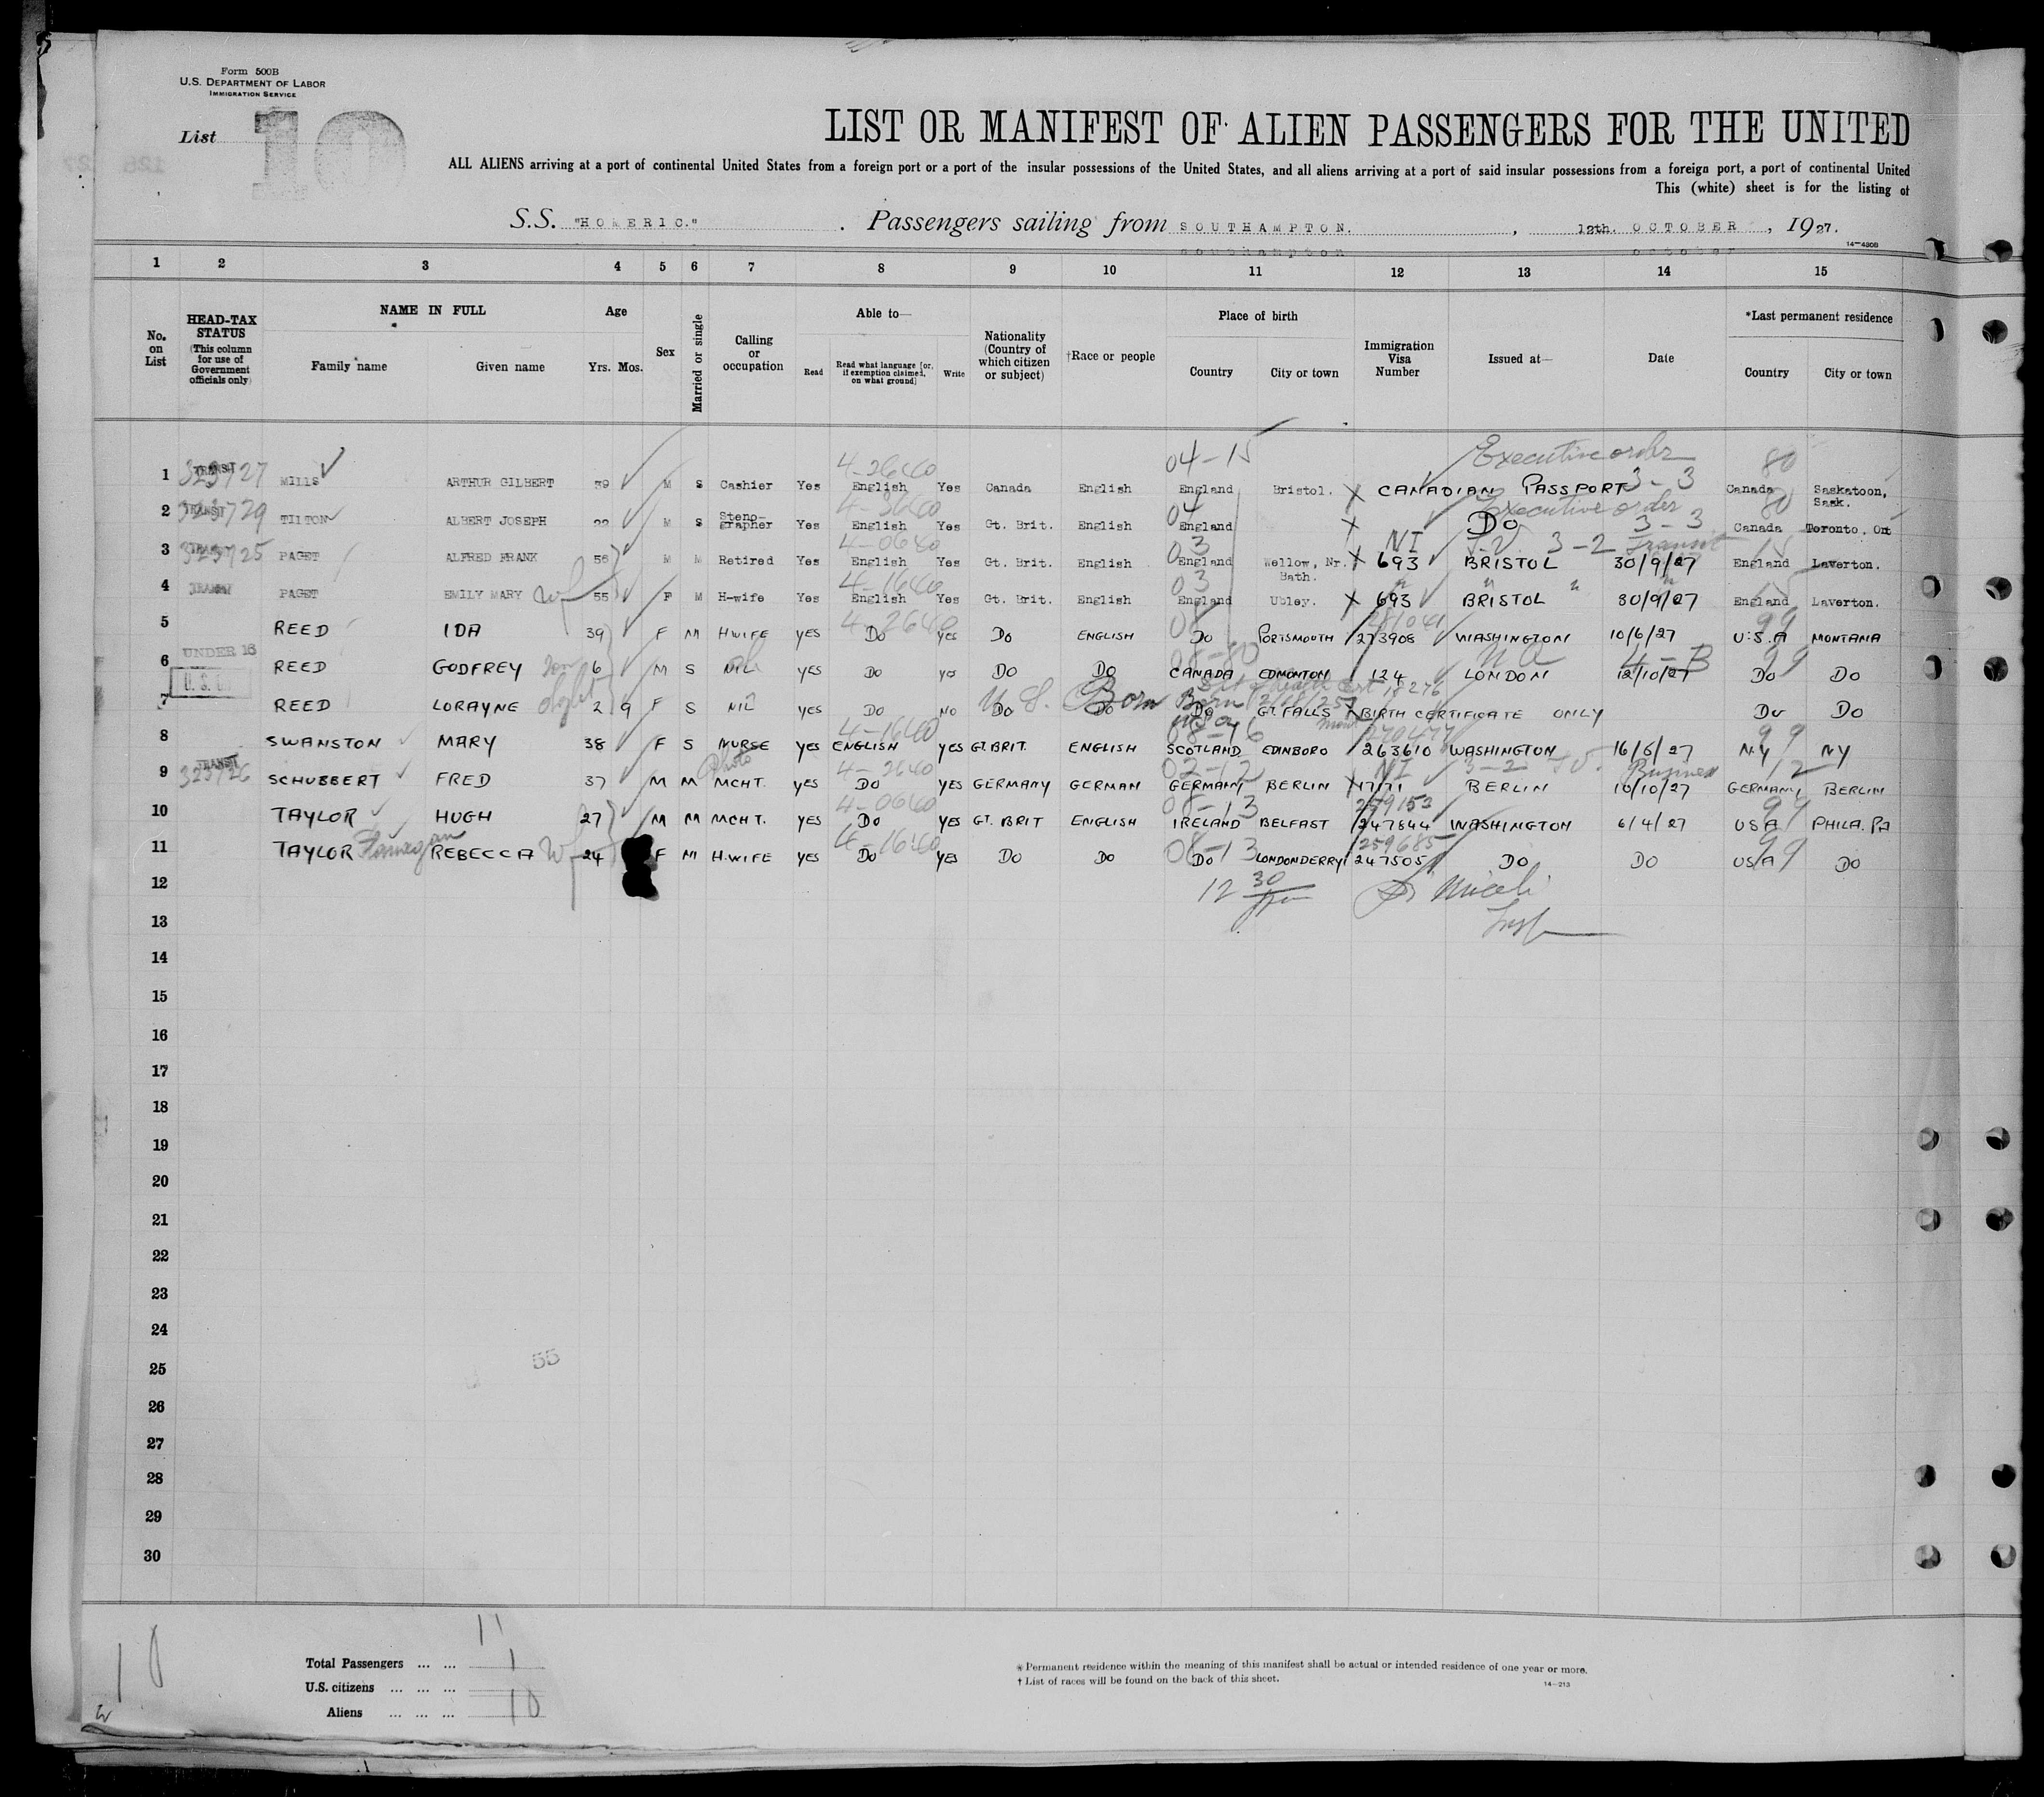 Form 500B
U.S. DEPARTMENT OF LABOR
IMMIGRATION SERVICE
List 10
LIST OR MANIFEST OF ALIEN PASSENGERS FOR THE UNITED
ALL ALIENS arriving at a port of continental United States from a foreign port or a port of the insular possessions of the United States, and all aliens arriving at a port of said insular possessions from a foreign port, a port of continental United
This (white) sheet is for the listing of
S.S. "HOMERIC." Passengers sailing from SOUTHAMPTON. , 12th. OCTOBER , 1927.
14-430B
1 2 3 4 5 6 7 8 9 10 11 12 13 14 15
No. on List
HEAD-TAX STATUS (This column for use of Government officials only)
NAME IN FULL Family name Given name
Age Yrs. Mos.
Sex
Married or single
Calling or occupation
Able to— Read Read what language [or, if exemption claimed, on what ground] Write
Nationality (Country of which citizen or subject)
†Race or people
Place of birth Country City or town
Immigration Visa Number
Issued at—
Date
*Last permanent residence Country City or town
4-2640 04-15 Executive order 80
1 TRANSIT 323727 MILLS ARTHUR GILBERT 39 M S Cashier Yes English Yes Canada English England Bristol. X CANADIAN PASSPORT 3-3 Canada Saskatoon, Sask.
04 Executive order 80
2 TRANSIT 323729 TILTON ALBERT JOSEPH 22 M S Stenographer Yes English Yes Gt. Brit. English England X DO 3-3 Canada Toronto, Ont
4-0640 03 NI T.V. 3-2 Transit 15
3 TRANSIT 323725 PAGET ALFRED FRANK 56 M M Retired Yes English Yes Gt. Brit. English England Wellow, Nr. Bath. X 693 BRISTOL 30/9/27 England Laverton.
4-1640 03 " " " " 15
4 TRANSIT PAGET EMILY MARY wf 55 F M H-wife Yes English Yes Gt. Brit. English England Ubley. X 693 BRISTOL 30/9/27 England Laverton.
4-2640 281041 99
5 REED IDA 39 F M HWIFE YES DO YES DO ENGLISH DO PORTSMOUTH 273908 WASHINGTON 10/6/27 U.S.A MONTANA
UNDER 16 08-80 4-B 99
6 REED GODFREY son 6 M S NIL YES DO YES DO DO CANADA EDMONTON 124 LONDON 12/10/27 DO DO
U.S. Born Born 18276
7 REED LORAYNE 2 9 F S NIL YES DO NO DO DO DO GT. FALLS X BIRTH CERTIFICATE ONLY DO DO
4-1640 08-16 270477 99
8 SWANSTON MARY 38 F S NURSE YES ENGLISH YES GT.BRIT. ENGLISH SCOTLAND EDINBORO 263610 WASHINGTON 16/5/27 N.Y NY
TRANSIT Photo 4-2640 02-12 NI 3-2 T.V. Business 12
9 323726 SCHUBBERT FRED 37 M M MCHT. YES DO YES GERMANY GERMAN GERMANY BERLIN X 47171 BERLIN 10/10/27 GERMANY BERLIN
4-0640 08-13 259153 99
10 TAYLOR HUGH 27 M M MCHT. YES DO YES GT. BRIT ENGLISH IRELAND BELFAST 247844 WASHINGTON 6/4/27 USA PHILA. PA
4-1640 08-13 259685 99
11 TAYLOR Flanagan REBECCA Wf 24 F M H.WIFE YES DO YES DO DO DO LONDONDERRY 247505 DO DO USA DO
12 12 30
13 Insp
14
15
16
17
18
19
20
21
22
23
24
25
55
26
27
28
29
30
10
11
Total Passengers ... ... 1
U.S. citizens ... ... ...
Aliens ... ... ... 10
* Permanent residence within the meaning of this manifest shall be actual or intended residence of one year or more.
† List of races will be found on the back of this sheet.
14-213